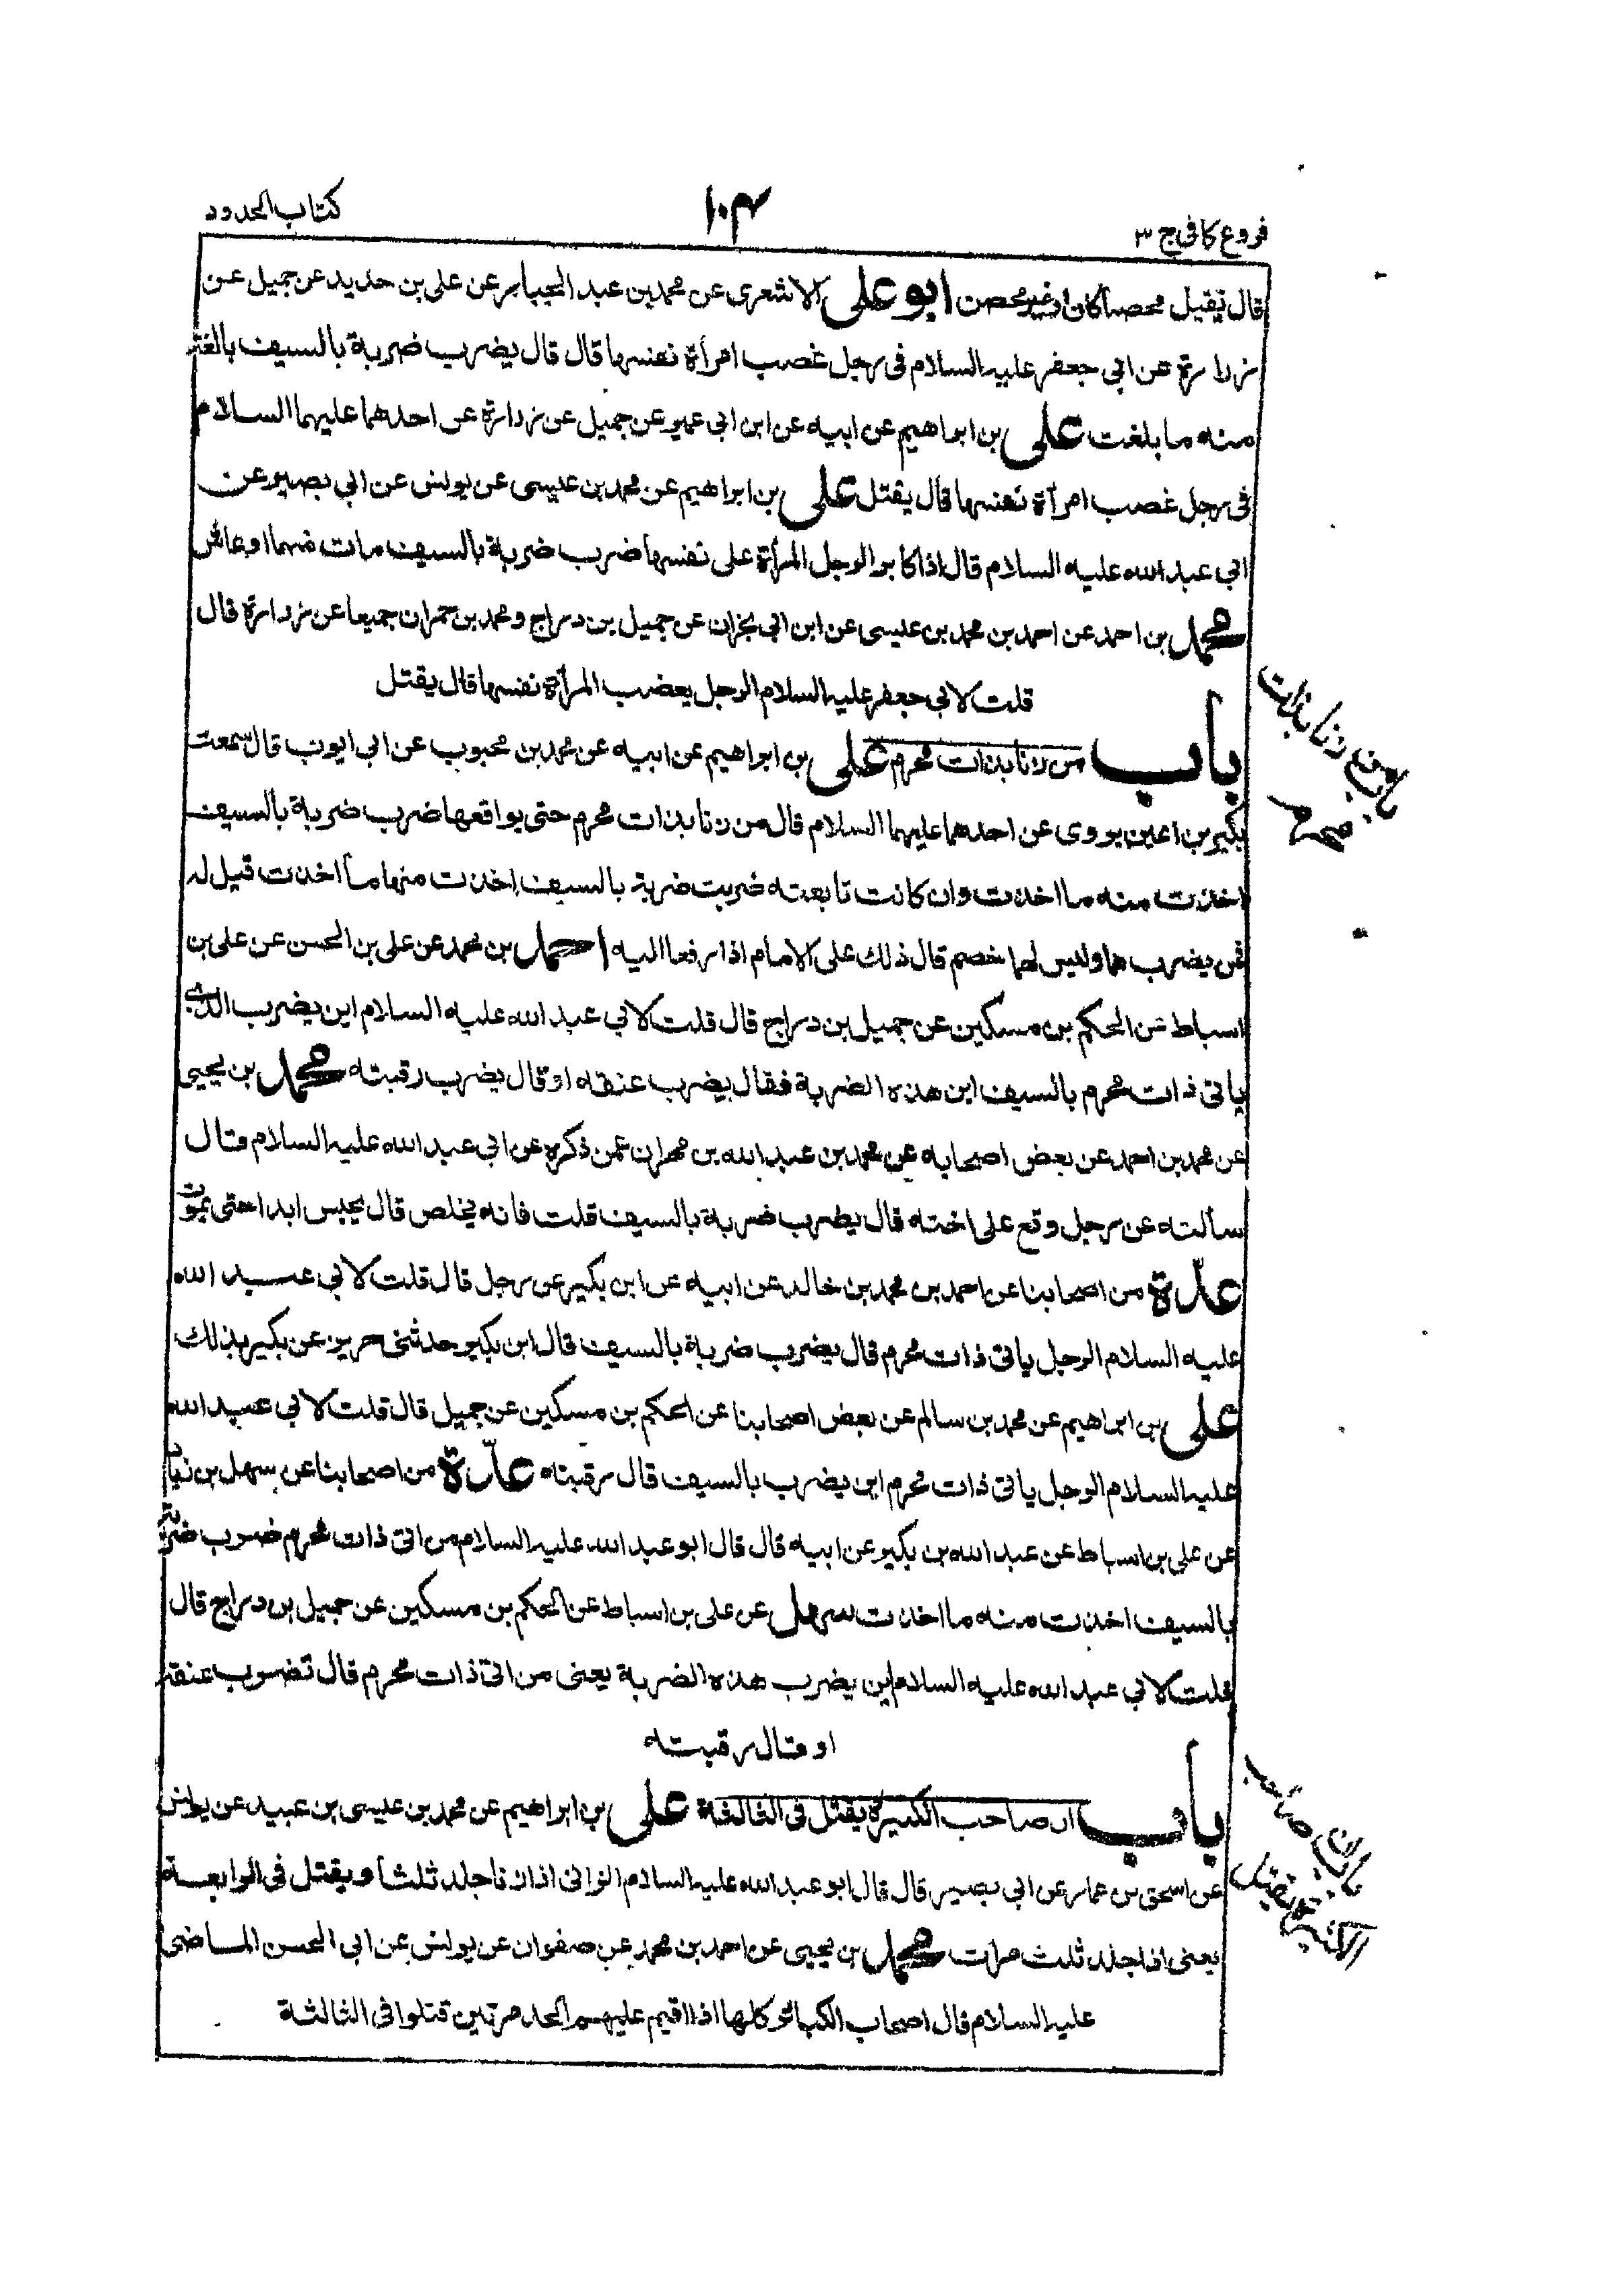 فروع كافى ج ٣
١٠٤
كتاب الحدود
قال يقتل محصنا كان او غير محصن ابو على الاشعرى عن محمد بن عبد الجبار عن على بن حديد عن جميل عن
زرارة عن ابي جعفر عليه السلام فى رجل غصب امرأة نفسها قال قال يضرب ضربة بالسيف بالغة
منه ما بلغت على بن ابراهيم عن ابيه عن ابن ابي عمير عن جميل عن زرارة عن احدهما عليهما السلام
فى رجل غصب امرأة نفسها قال يقتل على بن ابراهيم عن محمد بن عيسى عن يونس عن ابي بصير عن
ابي عبد الله عليه السلام قال اذا كابر الرجل المرأة على نفسها ضرب ضربة بالسيف مات منها او عاش
محمد بن احمد عن احمد بن محمد بن عيسى عن ابن ابي نجران عن جميل بن دراج و محمد بن حمران جميعا عن زرارة قال
قلت لابي جعفر عليه السلام الرجل يغصب المرأة نفسها قال يقتل
باب من زنا بذات محرم على بن ابراهيم عن ابيه عن محمد بن محبوب عن ابى ايوب قال سمعت
بكير بن اعين يروى عن احدهما عليهما السلام قال من زنا بذات محرم حتى يواقعها ضرب ضربة بالسيف
اخذت منه ما اخذت وان كانت تابعته ضربت ضربة بالسيف اخذت منها ما اخذت قيل له
فمن يضربهما وليس لهما خصم قال ذلك على الامام اذا رفعا اليه احمد بن محمد عن على بن الحسن عن على بن
اسباط عن الحكم بن مسكين عن جميل بن دراج قال قلت لابي عبد الله عليه السلام اين يضرب الذى
ياتى ذات محرم بالسيف اين هذه الضربة فقال يضرب عنقه او قال يضرب رقبته محمد بن يحيى
عن محمد بن احمد عن بعض اصحابه عن محمد بن عبد الله بن مهران عمن ذكره عن ابي عبد الله عليه السلام قال
سألته عن رجل وقع على اخته قال يضرب ضربة بالسيف قلت فانه يخلص قال يحبس ابدا حتى يموت
عدّة من اصحابنا عن احمد بن محمد بن خالد عن ابيه عن ابن بكير عن رجل قال قلت لابي عبد الله
عليه السلام الرجل ياتى ذات محرم قال يضرب ضربة بالسيف قال ابن بكير حدثنى حريز عن بكير بذلك
على بن ابراهيم عن محمد بن سالم عن بعض اصحابنا عن الحكم بن مسكين عن جميل قال قلت لابي عبد الله
عليه السلام الرجل ياتى ذات محرم اين يضرب بالسيف قال رقبته عدّة من اصحابنا عن سهل بن زياد
عن على بن اسباط عن عبد الله بن بكير عن ابيه قال قال ابو عبد الله عليه السلام من اتى ذات محرم ضرب ضربة
بالسيف اخذت منه ما اخذت سهل عن على بن اسباط عن الحكم بن مسكين عن جميل بن دراج قال
قلت لابي عبد الله عليه السلام اين يضرب هذه الضربة يعنى من اتى ذات محرم قال تضرب عنقه
او قال رقبته
باب ان صاحب الكبيرة يقتل فى الثالثة على بن ابراهيم عن محمد بن عيسى بن عبيد عن يونس
عن اسحق بن عمار عن ابي بصير قال قال ابو عبد الله عليه السلام الزانى اذا زنا جلد ثلثا و يقتل فى الرابعة
يعنى اذا جلد ثلث مرات محمد بن يحيى عن احمد بن محمد عن صفوان عن يونس عن ابى الحسن الماضى
عليه السلام قال اصحاب الكبائر كلها اذا اقيم عليهم الحد مرتين قتلوا فى الثالثة
باب من زنا بذات
محرم
باب ان صاحب
الكبيرة يقتل